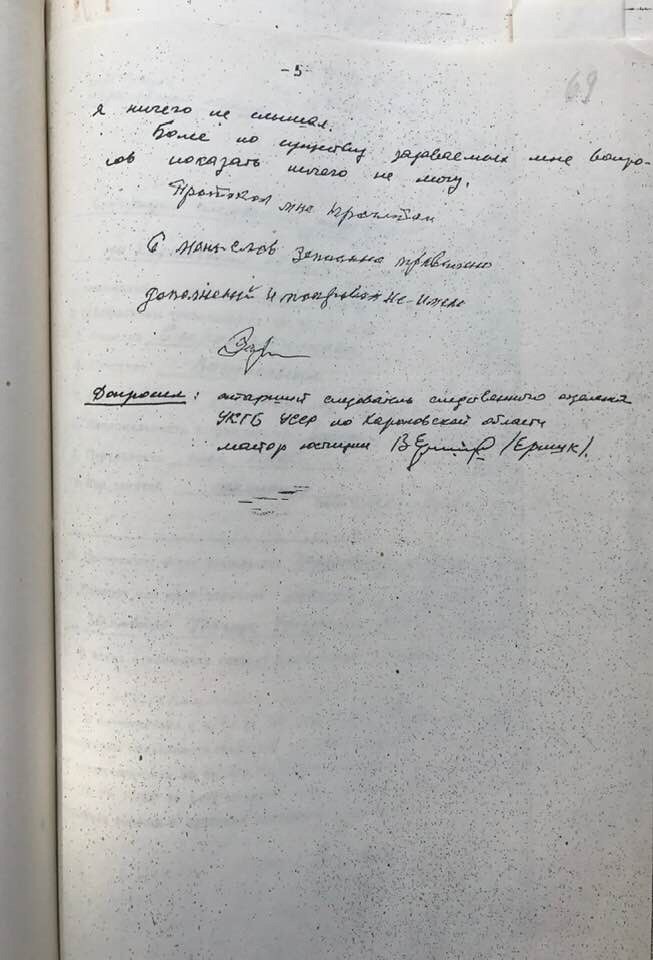 -5-
69
я ничего не слышал.
Более по существу задаваемых мне вопро-
сов показать ничего не могу.
Протокол мне прочитан
С моих слов записанно правильно
дополнений и поправок не имею
Допросил: старший следователь следственного отделения
УКГБ УССР по Харьковской области
майор юстиции /Ершук/.